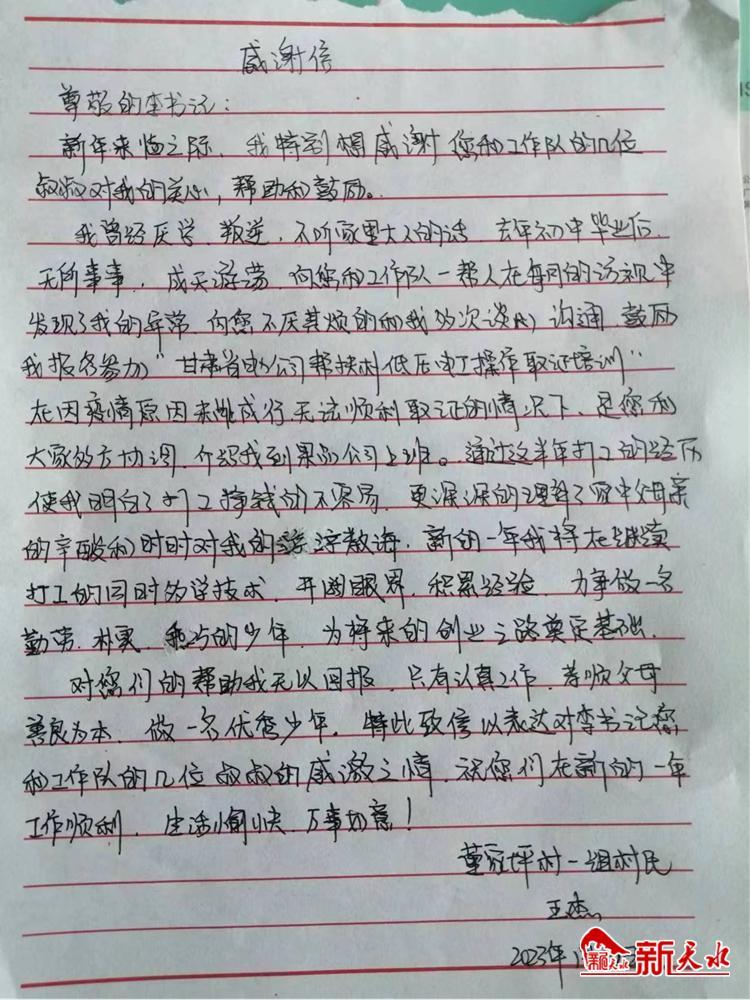 感谢信
尊敬的李书记：
新年来临之际，我特别想感谢您和工作队的几位
叔叔对我的关心，帮助和鼓励。
我曾经厌学、叛逆，不听家里大人的话，去年初中毕业后，
无所事事，成天游荡，向您和工作队一帮人在每月的访视中
发现了我的异常，向您不厌其烦的和我多次谈心，沟通，鼓励
我报名参加“甘肃省电公司帮扶村低压电工操作取证培训”
在因疫情原因未能成行无法顺利取证的情况下，是您和
大家多方协调，介绍我到果品公司上班。通过这半年打工的经历
使我明白了打工挣钱的不容易，更深深的理解了家中父母亲
的辛酸和时时对我的谆谆教诲，新的一年我将在继续
打工的同时多学技术，开阔眼界，积累经验，力争做一名
勤劳、朴实、的少年，为将来的创业之路奠定基础，
对您们的帮助我无以回报，只有认真工作，孝顺父母
善良为本，做一名优秀少年，特此致信以表达对李书记您
和工作队的几位叔叔的感激之情，祝您们在新的一年
工作顺利，生活愉快，万事如意！
董家坪村一组村民
王杰
2023年1月
新天水